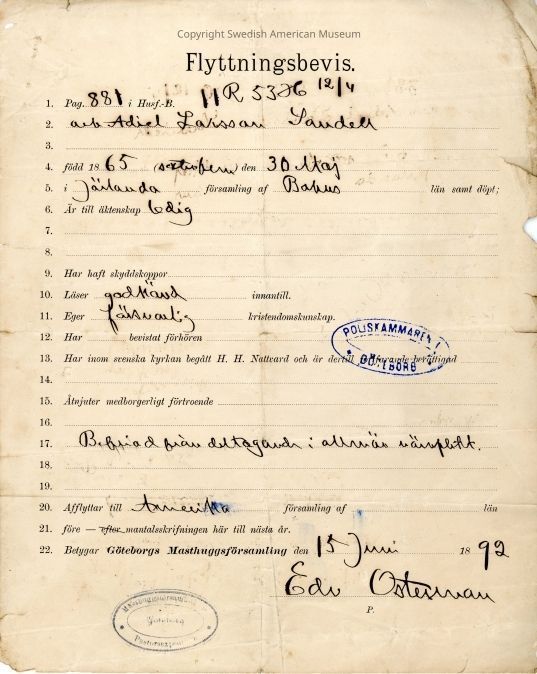 Copyright Swedish American Museum
Flyttningsbevis.
1. Pag. 881 i Husf.-B. 12/4
2. Adiel Larsson Sandell
3.
4. född 18 65 den 30 Maj
5. i Jörlanda församling af Bohus län samt döpt;
6. Är till äktenskap ledig
7.
8.
9. Har haft skyddskoppor
10. Läser godkänd innantill.
11. Eger försvarlig kristendomskunskap.
12. Har bevistat förhören
13. Har inom svenska kyrkan begått H. H. Nattvard och är dertill fortfarande berättigad
POLISKAMMAREN I
GÖTEBORG
14.
15. Åtnjuter medborgerligt förtroende
16.
17. Befriad från deltagande i allmän värnplikt.
18.
19.
20. Afflyttar till Amerika församling af län
21. före — efter mantalsskrifningen här till nästa år.
22. Betygar Göteborgs Masthuggsförsamling den 15 Juni 18 92
Edv Österman
P.
Göteborg